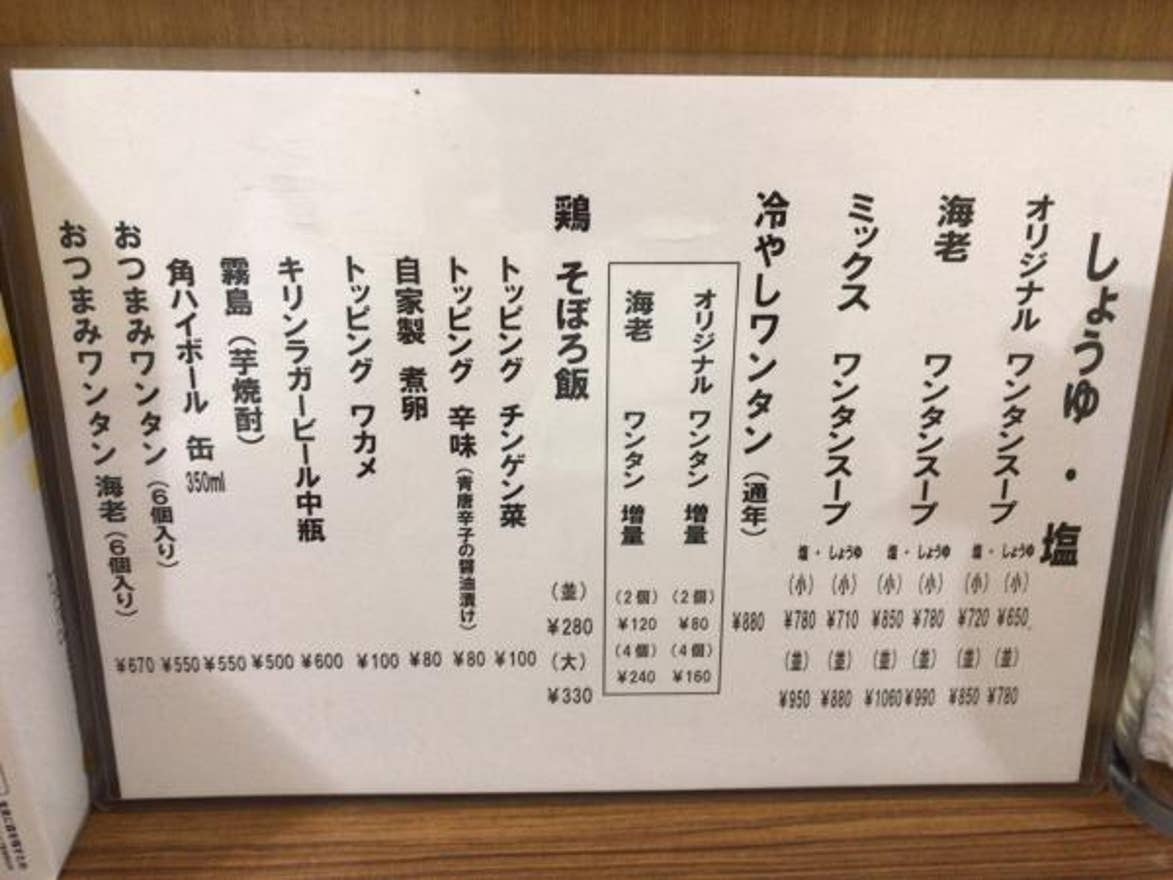 しょうゆ・塩
オリジナル ワンタンスープ しょうゆ・塩 (小) ¥650 (小) ¥720 (並) ¥780 (並) ¥850
海老 ワンタンスープ しょうゆ・塩 (小) ¥780 (小) ¥850 (並) ¥990 (並) ¥1060
ミックス ワンタンスープ しょうゆ・塩 (小) ¥710 (小) ¥780 (並) ¥880 (並) ¥950
冷やしワンタン(通年) ¥880
オリジナル ワンタン 増量 (2個) ¥80 (4個) ¥160
海老 ワンタン 増量 (2個) ¥120 (4個) ¥240
鶏 そぼろ飯 (並) ¥280 (大) ¥330
トッピング チンゲン菜 ¥100
トッピング 辛味(青唐辛子の醤油漬け) ¥80
自家製 煮卵 ¥80
トッピング ワカメ ¥100
キリンラガービール中瓶 ¥600
霧島(芋焼酎) ¥500
角ハイボール 缶 350ml ¥550
おつまみワンタン(6個入り) ¥550
おつまみワンタン 海老(6個入り) ¥670